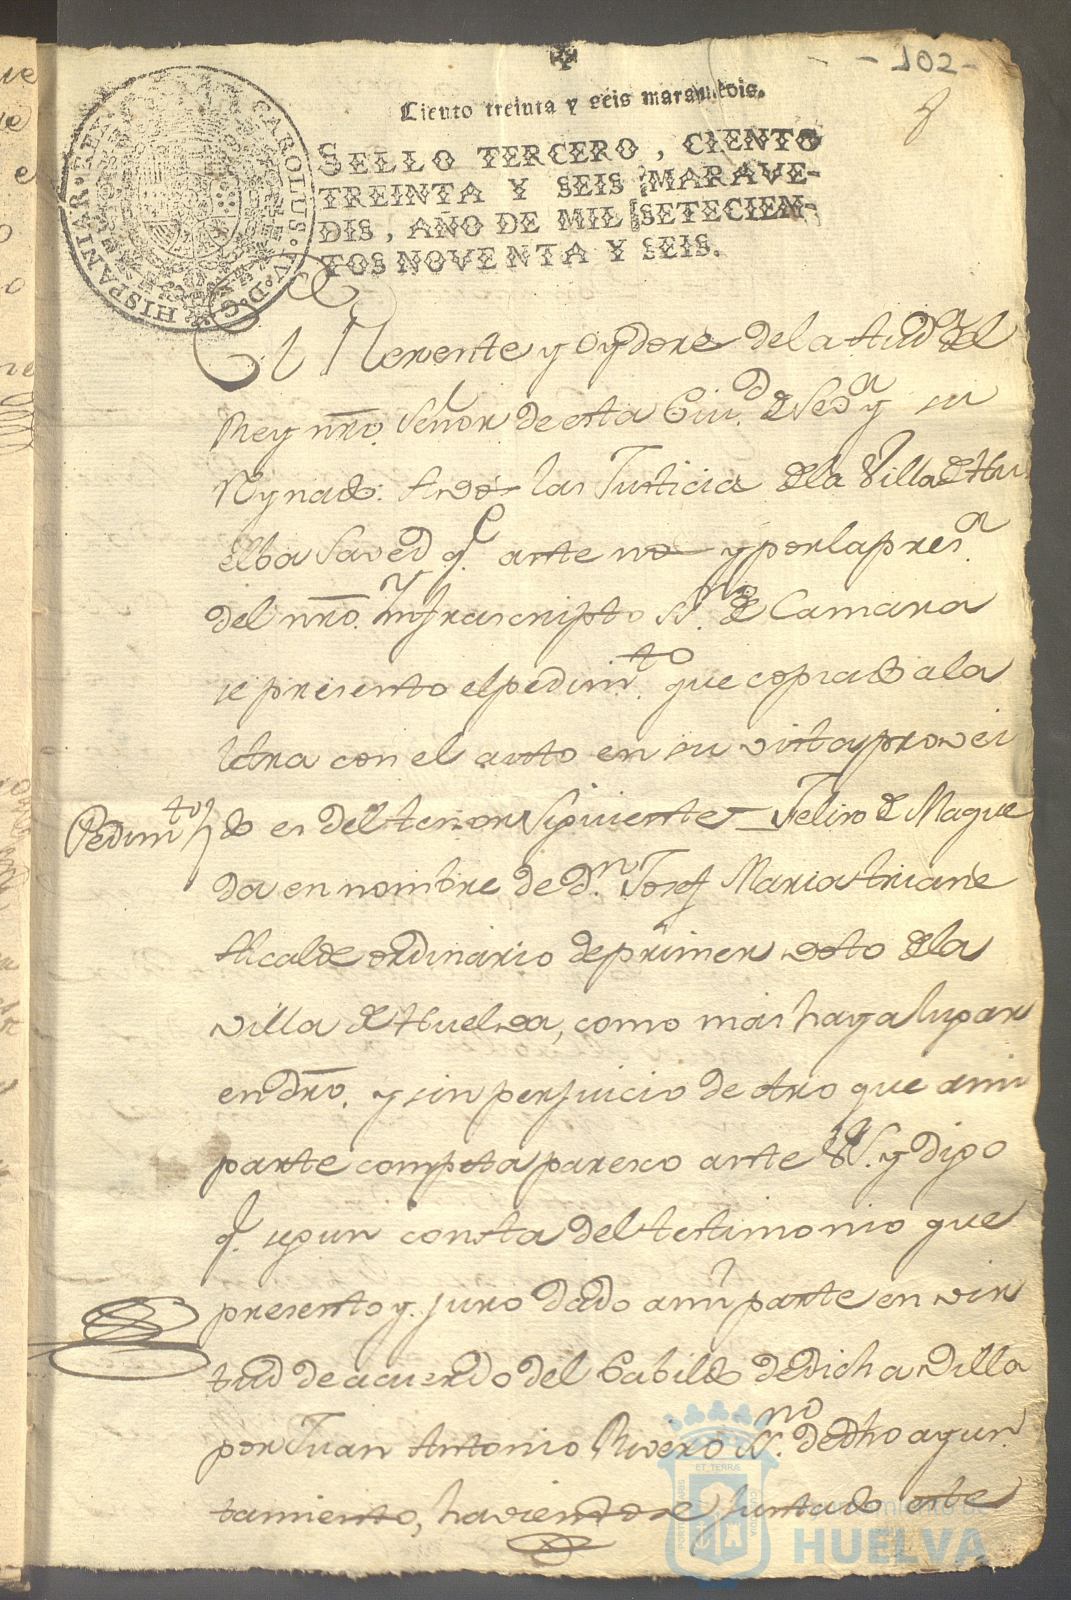 -102-
Ciento treinta y seis maravedis.
SELLO TERCERO, CIENTO
TREINTA Y SEIS MARAVE-
DIS, AÑO DE MIL SETECIEN-
TOS NOVENTA Y SEIS.
CAROLUS·IV·D·G·HISPANIAR·REX·
El Rexente y Oydores de la Aud.ª del
Rey nrõ. Señor de esta Ciu.d de Sev.ª y su
Reynado: A vos las Justicia de la Villa de Hu
elba Saved q.e ante nos y por la pres.ª
del nrõ. Infrascripto Ss.no de Camara
se presento el pedim.to que copiado a la
letra con el auto en su vista provei
Pedim.to do es del tenor siguiente Felix de Mague
da en nombre de D.n Josef Maria Triane
Alcalde ordinario de primer voto de la
villa de Huelva, como mas haya lugar
en dr̃o. y sin perjuicio de otro que a mi
parte competa paresco ante V.S. y digo
q.e segun consta del testimonio que
presento y juro dado a mi parte en vir
tud de acuerdo del Cabildo de dicha villa
por Juan Antonio Rivero Ss.no de dho ayun
tamiento, haviendose juntado este
Ayuntamiento de
HUELVA